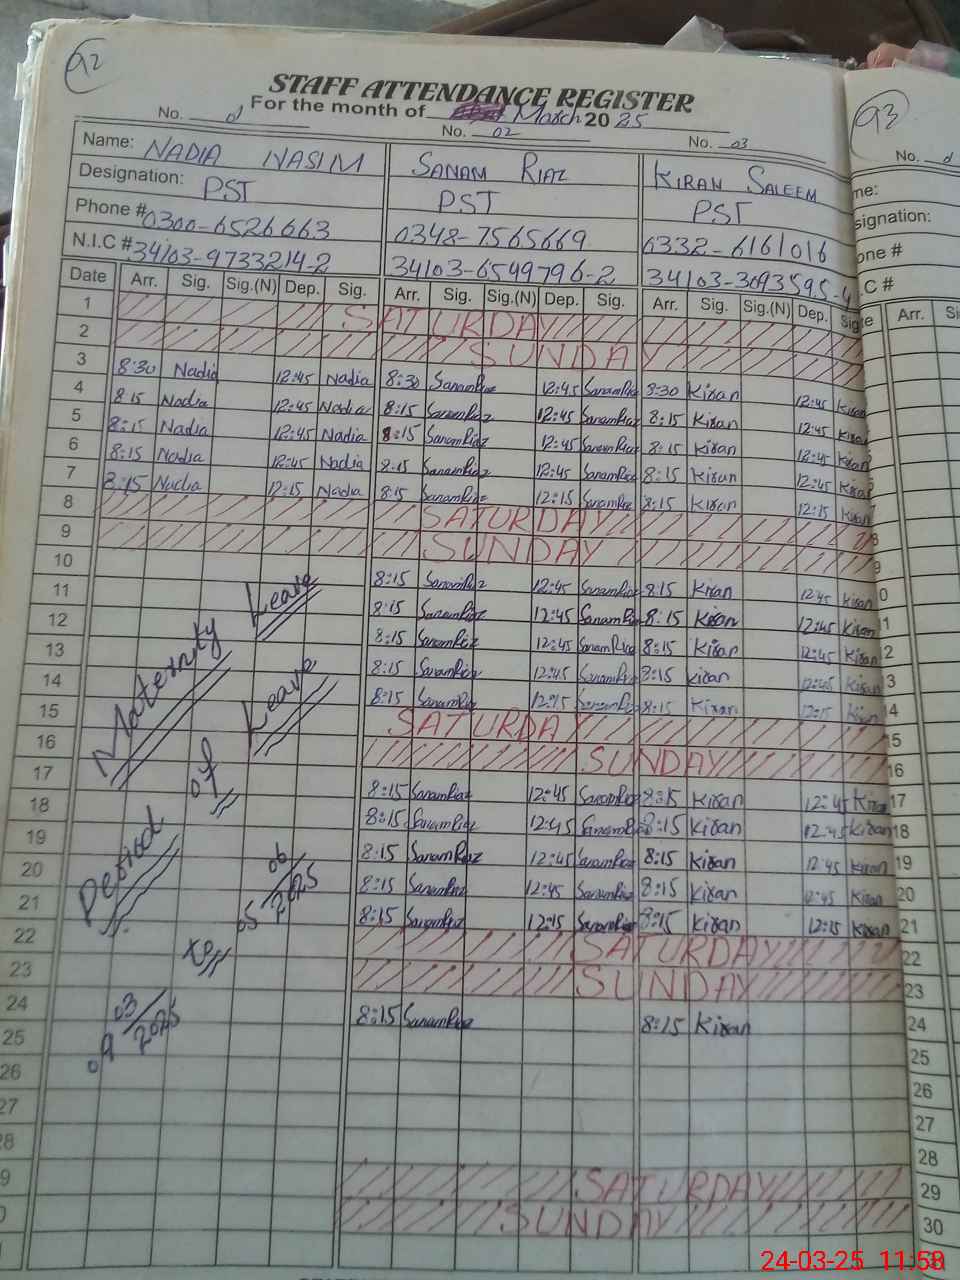 92
STAFF ATTENDANCE REGISTER
For the month of March 2025
No. 01 No. 02 No. 03
Name: NADIA NASIM SANAM RIAZ KIRAN SALEEM
Designation: PST PST PST
Phone # 0300-6526663 0348-7565669 0332-6161016
N.I.C # 34103-9733214-2 34103-6549796-2 34103-3093595-4
Date Arr. Sig. Sig.(N) Dep. Sig. Arr. Sig. Sig.(N) Dep. Sig. Arr. Sig. Sig.(N) Dep. Sig
1 SATURDAY
2 SUNDAY
3 8:30 Nadia 12:45 Nadia 8:30 SanamRiaz 12:45 SanamRiaz 8:30 Kiran 12:45 Kiran
4 8:15 Nadia 12:45 Nadia 8:15 SanamRiaz 12:45 SanamRiaz 8:15 Kiran 12:45 Kiran
5 8:15 Nadia 12:45 Nadia 8:15 SanamRiaz 12:45 SanamRiaz 8:15 Kiran 12:45 Kiran
6 8:15 Nadia 12:45 Nadia 8:15 SanamRiaz 12:45 SanamRiaz 8:15 Kiran 12:45 Kiran
7 8:15 Nadia 12:15 Nadia 8:15 SanamRiaz 12:15 SanamRiaz 8:15 Kiran 12:15 Kiran
8 SATURDAY
9 SUNDAY
10 8:15 SanamRiaz 12:45 SanamRiaz 8:15 Kiran 12:45 Kiran
11 8:15 SanamRiaz 12:45 SanamRiaz 8:15 Kiran 12:45 Kiran
12 8:15 SanamRiaz 12:45 SanamRiaz 8:15 Kiran 12:45 Kiran
13 8:15 SanamRiaz 12:45 SanamRiaz 8:15 Kiran 12:45 Kiran
14 8:15 SanamRiaz 12:15 SanamRiaz 8:15 Kiran 12:15 Kiran
15 SATURDAY
16 SUNDAY
17 8:15 SanamRiaz 12:45 SanamRiaz 8:15 Kiran 12:45 Kiran
18 8:15 SanamRiaz 12:45 SanamRiaz 8:15 Kiran 12:45 Kiran
19 8:15 SanamRiaz 12:45 SanamRiaz 8:15 Kiran 12:45 Kiran
20 8:15 SanamRiaz 12:45 SanamRiaz 8:15 Kiran 12:45 Kiran
21 8:15 SanamRiaz 12:15 SanamRiaz 8:15 Kiran 12:15 Kiran
22 SATURDAY
23 SUNDAY
24 8:15 SanamRiaz 8:15 Kiran
25
26
27
28
9 SATURDAY
0 SUNDAY
Maternity Leave
Period of Leave
09/03/2025 to 05/06/2025
93
No. 0
me:
signation:
one #
C #
te Arr. Si
8
9
0
1
2
3
14
15
16
17
18
19
20
21
22
23
24
25
26
27
28
29
30
24-03-25 11:58